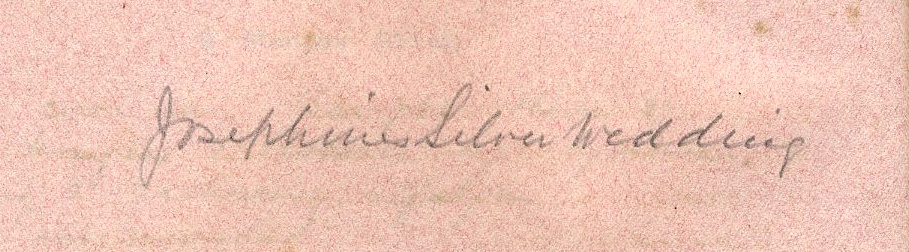 Josephines Silver Wedding